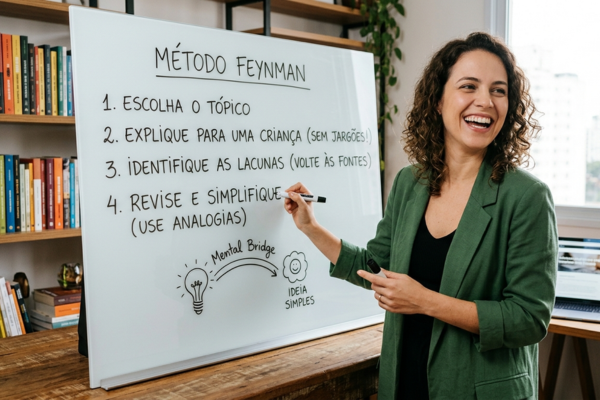 MÉTODO FEYNMAN
1. ESCOLHA O TÓPICO
2. EXPLIQUE PARA UMA CRIANÇA (SEM JARGÕES!)
3. IDENTIFIQUE AS LACUNAS (VOLTE ÀS FONTES)
4. REVISE E SIMPLIFIQUE
(USE ANALOGIAS)
Mental Bridge
IDEIA
SIMPLES